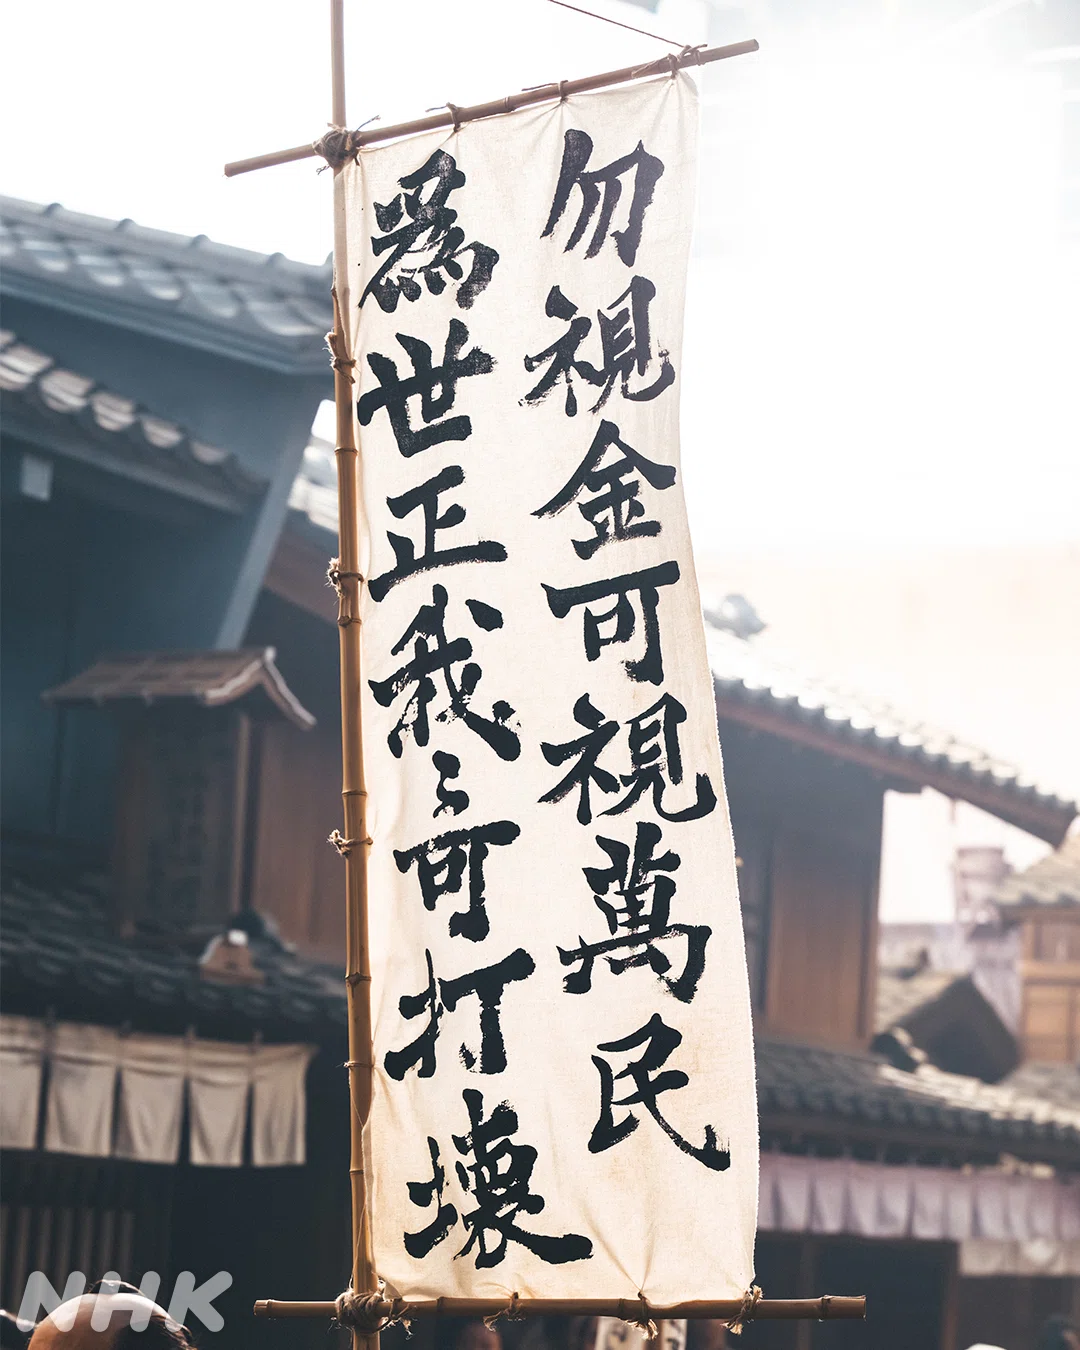 勿視金可視萬民
為世正我々可打壊
NHK